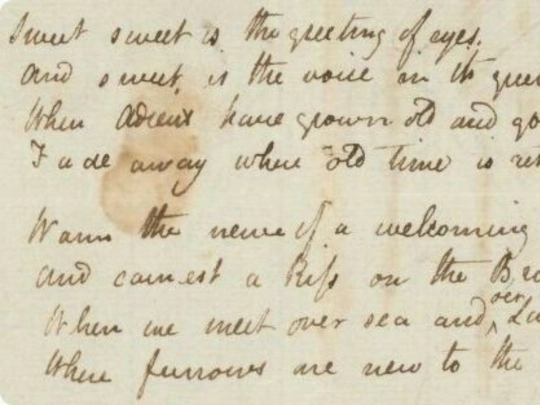 Sweet sweet is the greeting of eyes,
And sweet, is the voice in its gree
When Adieux have grown old and go
Fade away where old time is ret
Warm the nerve of a welcoming
And earnest a Kiss on the Bro
When we meet over sea and o'er La
Where furrows are new to the